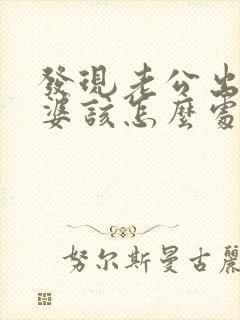 發現老公出
婆該怎麼處
努尔斯曼古麗